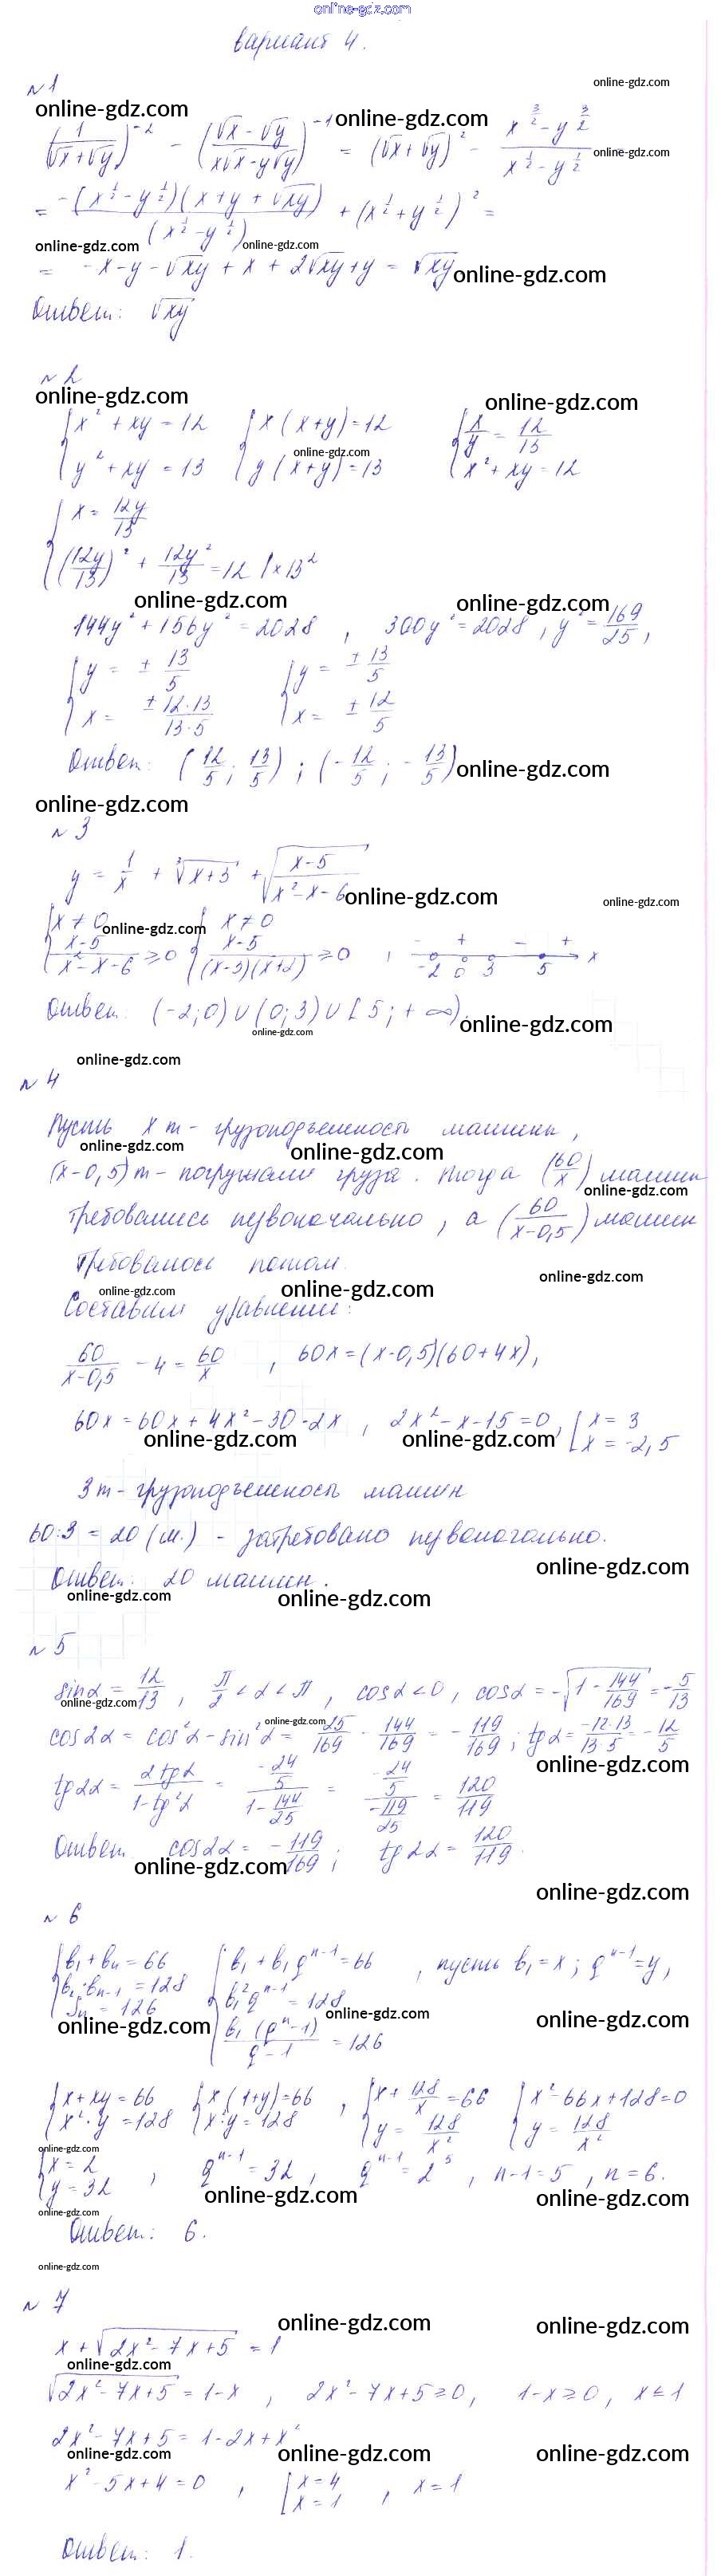 online-gdz.com
вариант 4.
№1
online-gdz.com
online-gdz.com online-gdz.com
(1/(√x+√y))^-2 - ((√x-√y)/(x√x-y√y))^-1 = (√x+√y)^2 - (x^(3/2)-y^(3/2))/(x^(1/2)-y^(1/2)) =
online-gdz.com
= -(x^(1/2)-y^(1/2))(x+y+√xy)/(x^(1/2)-y^(1/2)) + (x^(1/2)+y^(1/2))^2 =
online-gdz.com online-gdz.com
= -x-y-√xy+x+2√xy+y = √xy
online-gdz.com
Ответ: √xy
№2
online-gdz.com online-gdz.com
{x²+xy=12 {x(x+y)=12 {x/y=12/13
{y²+xy=13 {y(x+y)=13 {x²+xy=12
online-gdz.com
{x=12y/13
{(12y/13)²+12y²/13=12 |×13²
online-gdz.com online-gdz.com
144y²+156y²=2028, 300y²=2028, y²=169/25,
{y=±13/5 {y=±13/5
{x=±12·13/13·5 {x=±12/5
Ответ: (12/5; 13/5); (-12/5; -13/5)
online-gdz.com
online-gdz.com
№3
y=1/x+∛x+3+√((x-5)/(x²-x-6))
online-gdz.com online-gdz.com
{x≠0 {x≠0
online-gdz.com
{(x-5)/(x²-x-6)≥0 {(x-5)/((x-3)(x+2))≥0, - + - +
-2 0 3 5 x
Ответ: (-2;0)∪(0;3)∪[5;+∞).
online-gdz.com online-gdz.com
online-gdz.com
№4
Пусть x т - грузоподъемность машины,
online-gdz.com online-gdz.com
(x-0,5) т - погружали груза. Тогда (60/x) машин
online-gdz.com
требовались первоначально, а (60/(x-0,5)) машин
требовалось потом.
online-gdz.com
online-gdz.com online-gdz.com
Составим уравнение:
60/(x-0,5) - 4 = 60/x, 60x=(x-0,5)(60+4x),
60x=60x+4x²-30-2x, 2x²-x-15=0, [x=3
[x=-2,5
online-gdz.com online-gdz.com
3 т - грузоподъемность машин
60:3=20 (м.) - затребовано первоначально.
online-gdz.com
Ответ: 20 машин.
online-gdz.com online-gdz.com
№5
sinα=12/13, π/2<α<π, cosα<0, cosα=-√(1-144/169)=-5/13
online-gdz.com online-gdz.com
cos2α=cos²α-sin²α=25/169-144/169=-119/169; tgα=-12·13/13·5=-12/5
online-gdz.com
tg2α=2tgα/(1-tg²α)=(-24/5)/(1-144/25)=(-24/5)/(-119/25)=120/119
Ответ: cos2α=-119/169; tg2α=120/119.
online-gdz.com
online-gdz.com
№6
{b₁+bₙ=66 {b₁+b₁qⁿ⁻¹=66, пусть b₁=x; qⁿ⁻¹=y,
{b₂·bₙ₋₁=128 {b₁²qⁿ⁻¹=128
{Sₙ=126 {b₁(qⁿ-1)/(q-1)=126
online-gdz.com online-gdz.com
online-gdz.com
{x+xy=66 {x(1+y)=66, {x+128/x=66 {x²-66x+128=0
{x²·y=128 {x²y=128 {y=128/x² {y=128/x²
online-gdz.com
{x=2
{y=32, qⁿ⁻¹=32, qⁿ⁻¹=2⁵, n-1=5, n=6.
online-gdz.com online-gdz.com
online-gdz.com
Ответ: 6.
online-gdz.com
№7
online-gdz.com online-gdz.com
x+√(2x²-7x+5)=1
online-gdz.com
√(2x²-7x+5)=1-x, 2x²-7x+5≥0, 1-x≥0, x≤1
2x²-7x+5=1-2x+x²
online-gdz.com online-gdz.com online-gdz.com
x²-5x+4=0, [x=4
[x=1, x=1
Ответ: 1.